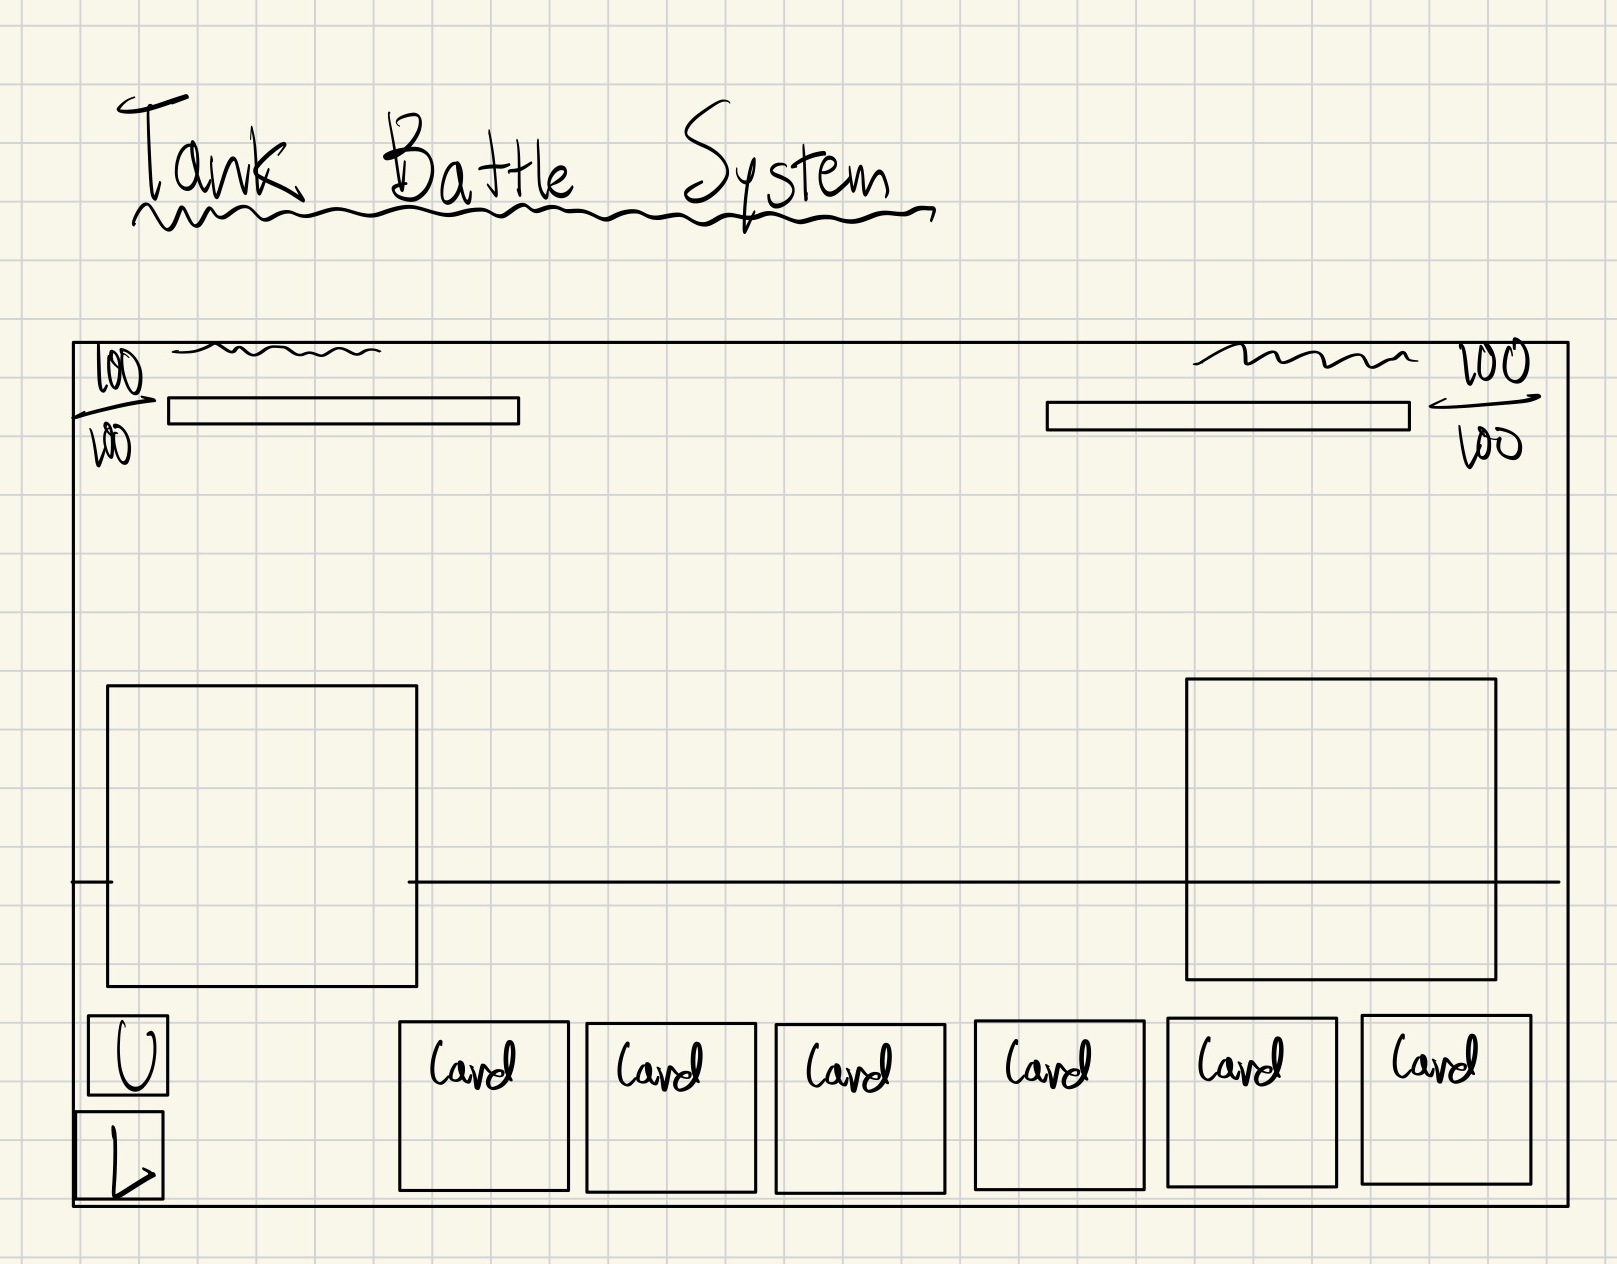 Tank Battle System
100 100
100 100
U
Card Card Card Card Card Card
L